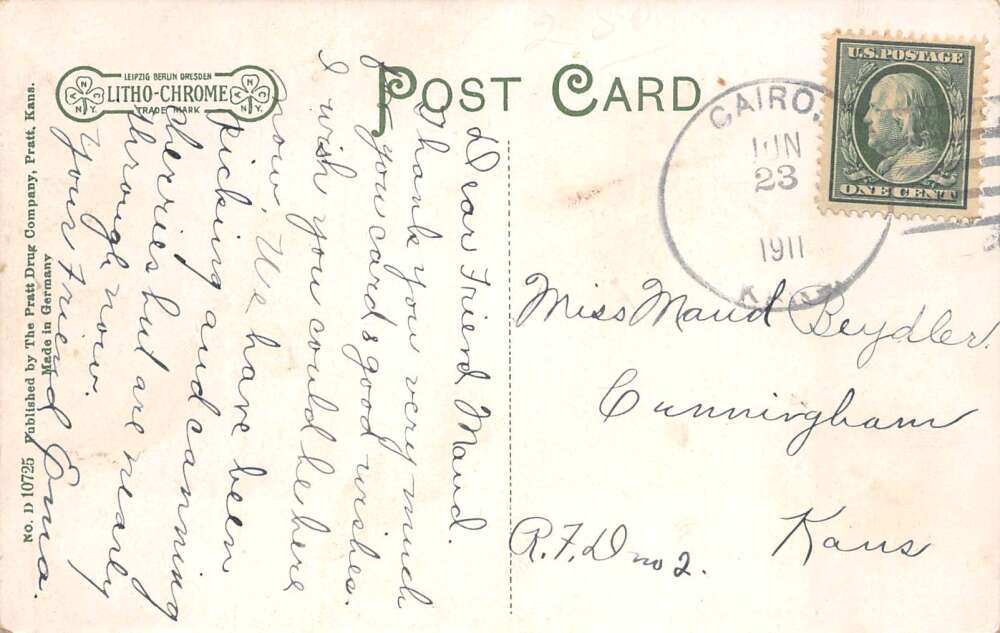 POST CARD
LEIPZIG BERLIN DRESDEN
LITHO-CHROME
TRADE MARK
N A C N.Y.
A N C N.Y.
U.S. POSTAGE
ONE CENT
CAIRO,
JUN
23
1911
KANS
Dear Friend Maud.
Thank you very much
for your card & good wishes.
I wish you could be here
now. We have been
picking and canning
cherries but are nearly
through now.
Your Friend Ema.
Miss Maud Beydler.
Cunningham
Kans
R.F.D no 2.
No. D 10725 Published by The Pratt Drug Company, Pratt, Kans.
Made in Germany